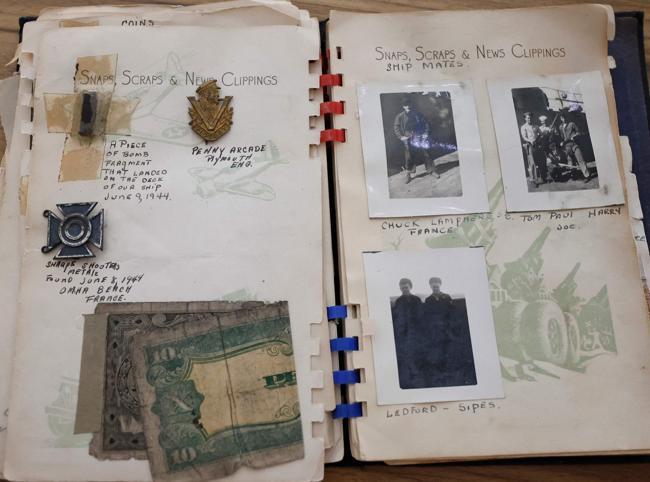 COINS
SNAPS, SCRAPS & NEWS CLIPPINGS
A PIECE
OF BOMB
FRAGMENT
THAT LANDED
ON THE DECK
OF OUR SHIP
JUNE 9, 1944.
PENNY ARCADE
PLYMOUTH
ENG.
SHARPE SHOOTERS
METAL
FOUND JUNE 8, 1944
OMAHA BEACH
FRANCE.
10
10
SNAPS, SCRAPS & NEWS CLIPPINGS
SHIP MATES.
CHUCK LAMPHERE - C. TOM PAUL HARRY
FRANCE JOE.
LEDFORD - SIPES.